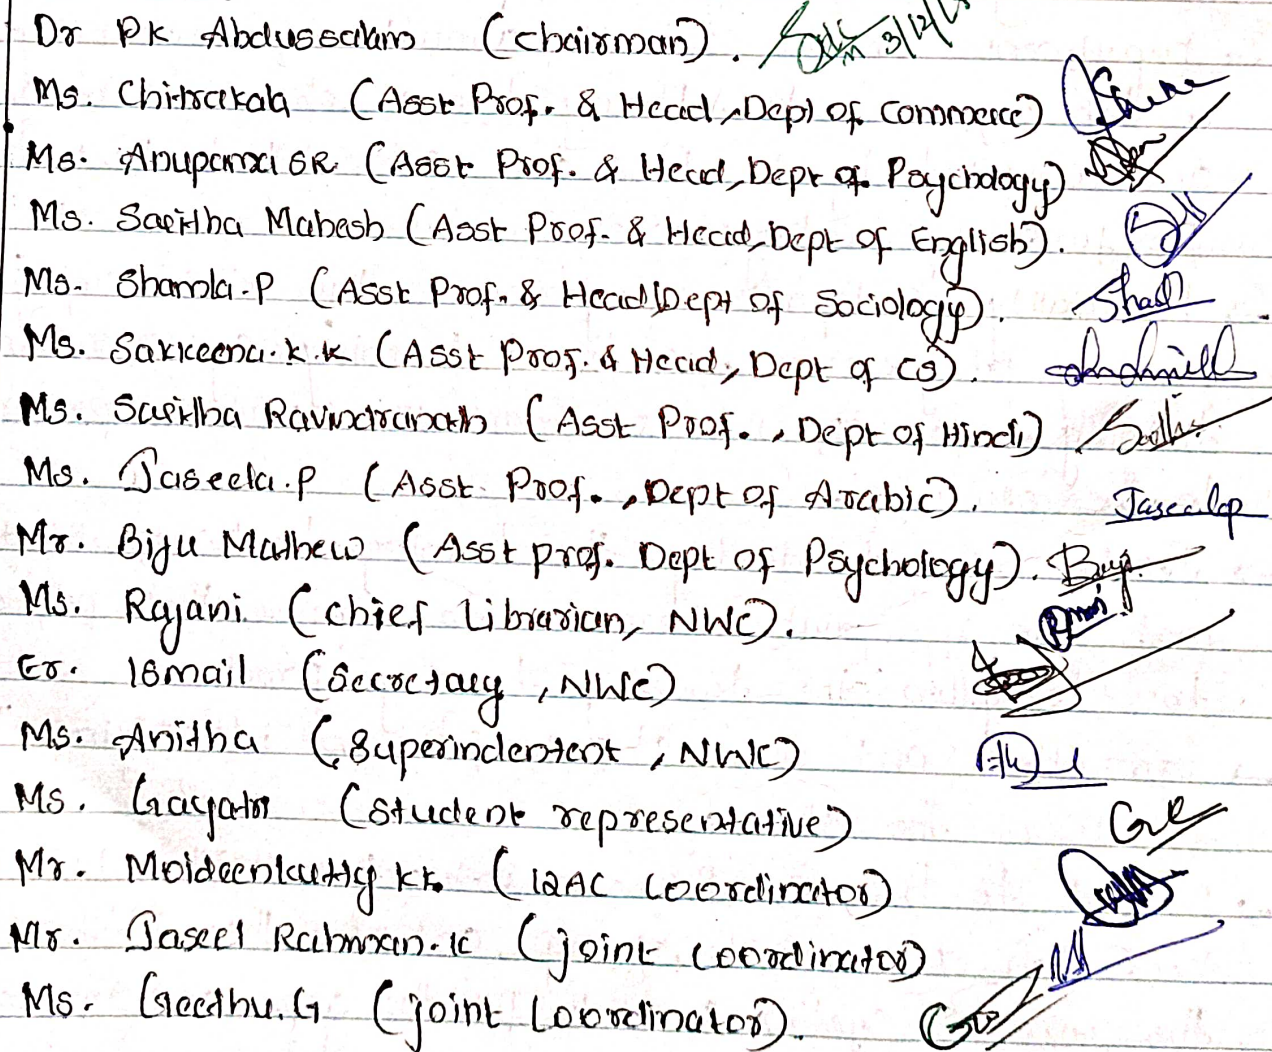 Dr PK Abdussalam (chairman). 3/12/
Ms. Chithrakala (Asst Prof. & Head, Dept of commerce)
Ms. Anupama SR (Asst Prof. & Head, Dept of Psychology)
Ms. Saritha Mahesh (Asst Prof. & Head, Dept of English).
Ms. Shamla.P (Asst Prof. & Head, Dept of Sociology). Shaml
Ms. Sakkeena.k.k (Asst Prof. & Head, Dept of CS).
Ms. Saritha Ravindranath (Asst Prof., Dept of Hindi)
Ms. Jaseela.P (Asst. Prof., Dept of Arabic). Jaseelap
Mr. Biju Mathew (Asst prof. Dept of Psychology). Biju
Ms. Rajani (chief Librarian, NWC).
Er. Ismail (Secretary, NWC)
Ms. Anitha (Superindentent, NWC)
Ms. Gayatri (student representative)
Mr. Moideenkutty kk. (IQAC Coordinator)
Mr. Jaseel Rahman.k (joint coordinator)
Ms. Geethu.G (joint Coordinator).